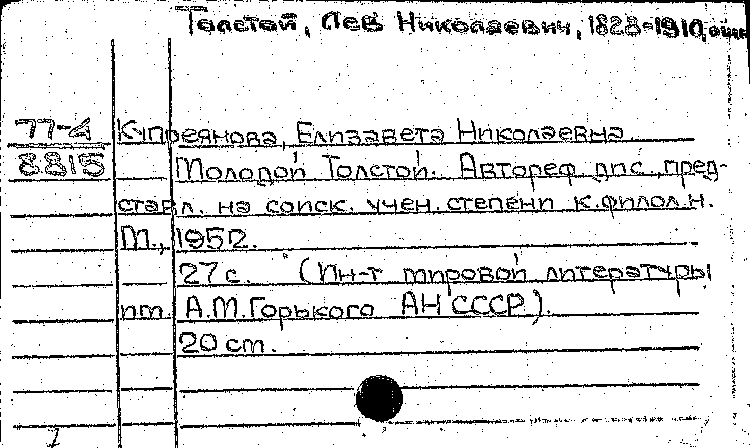 Толстой, Лев Николаевич, 1828-1910, о нем
77-4 Купреянова, Елизавета Николаевна.
8815 Молодой Толстой. Автореф. дис., пред-
ставл. на соиск. учен. степени к. филол. н.
М., 1952.
27 с. (Ин-т мировой литературы
им. А.М.Горького АН СССР).
20 см.